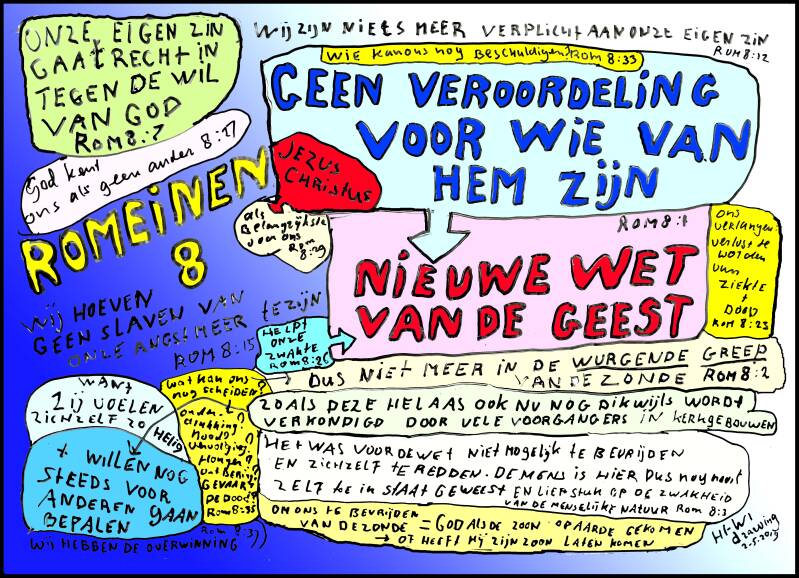 ONZE EIGEN ZIN
GAAT RECHT IN
TEGEN DE WIL
VAN GOD
ROM 8:7
WIJ ZIJN NIETS MEER VERPLICHT AAN ONZE EIGEN ZIN
ROM 8:12
WIE KAN ONS NOG BESCHULDIGEN? ROM 8:33
GEEN VEROORDELING
VOOR WIE VAN
HEM ZIJN
ROM 8:1
God kent
ons als geen ander 8:27
JEZUS
CHRISTUS
ROMEINEN
8
als
Belangrijkste
voor ons
Rom
8:29
NIEUWE WET
VAN DE GEEST
ons
verlangen
verlost te
worden
van
ziekte
+
DOOD
ROM 8:23
WIJ HOEVEN
GEEN SLAVEN VAN
ONZE ANGST MEER
TE ZIJN
ROM 8:15
HELPT
ONZE
ZWAKTE
ROM 8:26
DUS NIET MEER IN DE WURGENDE GREEP
VAN DE ZONDE ROM 8:2
ZOALS DEZE HELAAS OOK NU NOG DIKWIJLS WORDT
VERKONDIGD DOOR VELE VOORGANGERS IN KERKGEBOUWEN
HET WAS VOOR DE WET NIET MOGELIJK TE BEVRIJDEN
EN ZICHZELF TE REDDEN. DE MENS IS HIER DUS nog nooit
ZELF toe in STAAT GEWEEST EN LIEP STUK OP DE ZWAKHEID
VAN DE MENSELIJKE NATUUR Rom 8:3
OM ONS TE BEVRIJDEN
VAN DE ZONDE = GOD ALS DE ZOON OP AARDE GEKOMEN
→ OF HEEFT HIJ ZIJN ZOON LATEN KOMEN
WANT
ZIJ VOELEN
ZICHZELF ZO
HEILIG
+ WILLEN NOG
STEEDS VOOR
ANDEREN GAAN
BEPALEN
wat kan ons
nog scheiden?
Nood?
vervolging?
Honger?
ontbering?
GEVAAR?
DE DOOD?
Rom 8:35
WIJ HEBBEN DE OVERWINNING
Rom 8:37
drawing
2-5-2015